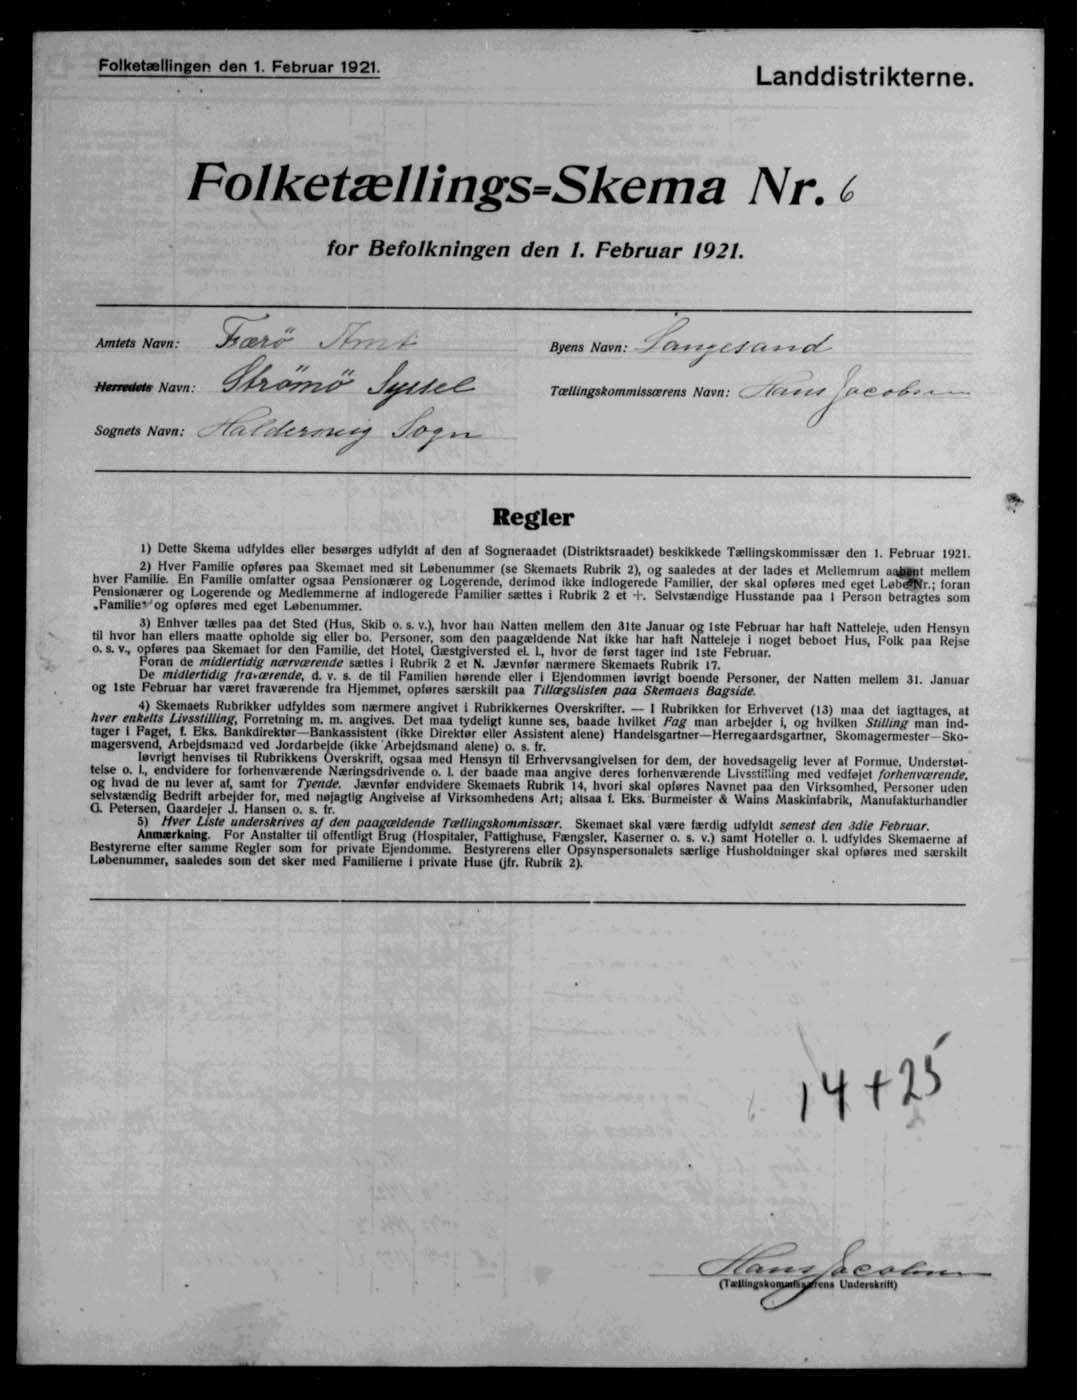 Folketællingen den 1. Februar 1921.
Landdistrikterne.
Folketællings=Skema Nr. 6
for Befolkningen den 1. Februar 1921.
Amtets Navn: Færö Amt
Byens Navn: Langesand
Herredets Navn: Strömö Syssel
Tællingskommissærens Navn: Hans Jacobsen
Sognets Navn: Haldersvig Sogn
Regler
1) Dette Skema udfyldes eller besørges udfyldt af den af Sogneraadet (Distriktsraadet) beskikkede Tællingskommissær den 1. Februar 1921.
2) Hver Familie opføres paa Skemaet med sit Løbenummer (se Skemaets Rubrik 2), og saaledes at der lades et Mellemrum aabent mellem
hver Familie. En Familie omfatter ogsaa Pensionærer og Logerende, derimod ikke indlogerede Familier, der skal opføres med eget Løbe-Nr.; foran
Pensionærer og Logerende og Medlemmerne af indlogerede Familier sættes i Rubrik 2 et +. Selvstændige Husstande paa 1 Person betragtes som
„Familie“ og opføres med eget Løbenummer.
3) Enhver tælles paa det Sted (Hus, Skib o. s. v.), hvor han Natten mellem den 31te Januar og 1ste Februar har haft Natteleje, uden Hensyn
til hvor han ellers maatte opholde sig eller bo. Personer, som den paagældende Nat ikke har haft Natteleje i noget beboet Hus, Folk paa Rejse
o. s. v., opføres paa Skemaet for den Familie, det Hotel, Gæstgiversted el. l., hvor de først tager ind 1ste Februar.
Foran de midlertidig nærværende sættes i Rubrik 2 et N. Jævnfør nærmere Skemaets Rubrik 17.
De midlertidig fraværende, d. v. s. de til Familien hørende eller i Ejendommen iøvrigt boende Personer, der Natten mellem 31. Januar
og 1ste Februar har været fraværende fra Hjemmet, opføres særskilt paa Tillægslisten paa Skemaets Bagside.
4) Skemaets Rubrikker udfyldes som nærmere angivet i Rubrikkernes Overskrifter. — I Rubrikken for Erhvervet (13) maa det iagttages, at
hver enkelts Livsstilling, Forretning m. m. angives. Det maa tydeligt kunne ses, baade hvilket Fag man arbejder i, og hvilken Stilling man ind-
tager i Faget, f. Eks. Bankdirektør—Bankassistent (ikke Direktør eller Assistent alene) Handelsgartner—Herregaardsgartner, Skomagermester—Sko-
magersvend, Arbejdsmand ved Jordarbejde (ikke Arbejdsmand alene) o. s. fr.
Iøvrigt henvises til Rubrikkens Overskrift, ogsaa med Hensyn til Erhvervsangivelsen for dem, der hovedsagelig lever af Formue, Understøt-
telse o. l., endvidere for forhenværende Næringsdrivende o. l. der baade maa angive deres forhenværende Livsstilling med vedføjet forhenværende,
og hvad de nu lever af, samt for Tyende. Jævnfør endvidere Skemaets Rubrik 14, hvori skal opføres Navnet paa den Virksomhed, Personer uden
selvstændig Bedrift arbejder for, med nøjagtig Angivelse af Virksomhedens Art; altsaa f. Eks. Burmeister & Wains Maskinfabrik, Manufakturhandler
G. Petersen, Gaardejer J. Hansen o. s. fr.
5) Hver Liste underskrives af den paagældende Tællingskommissær. Skemaet skal være færdig udfyldt senest den 3die Februar.
Anmærkning. For Anstalter til offentligt Brug (Hospitaler, Fattighuse, Fængsler, Kaserner o. s. v.) samt Hoteller o. l. udfyldes Skemaerne af
Bestyrerne efter samme Regler som for private Ejendomme. Bestyrerens eller Opsynspersonalets særlige Husholdninger skal opføres med særskilt
Løbenummer, saaledes som det sker med Familierne i private Huse (jfr. Rubrik 2).
14+25
Hans Jacobsen
(Tællingskommissærens Underskrift)